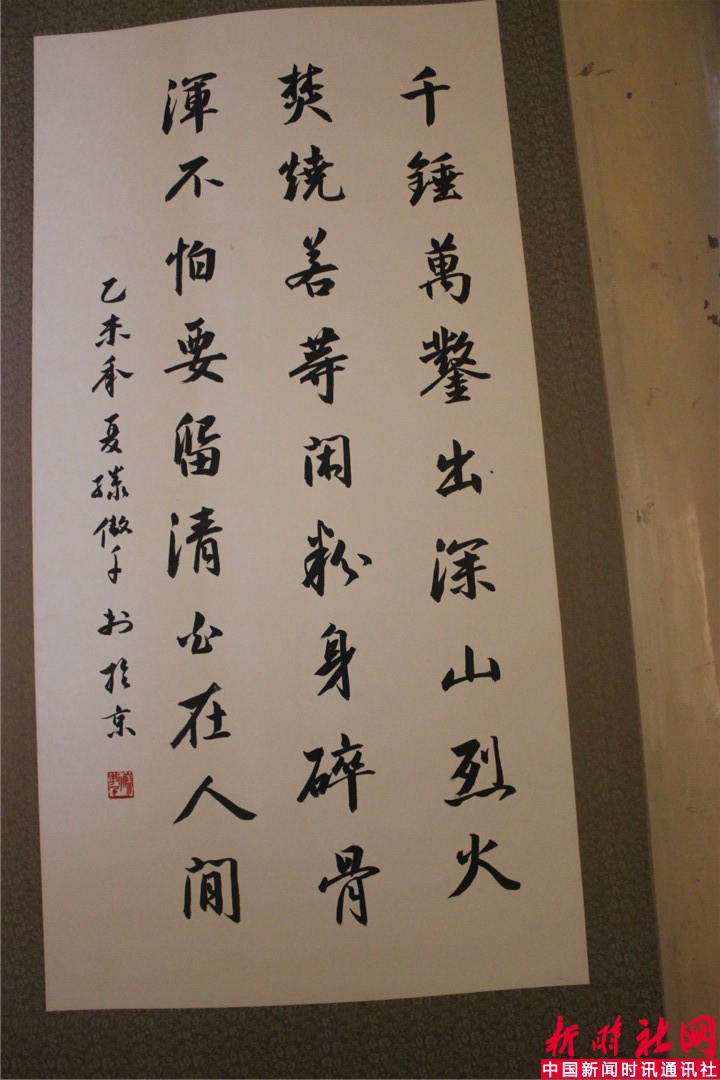 千錘萬鑿出深山烈火
焚燒若等闲粉身碎骨
渾不怕要留清白在人間
乙未年夏滕傲千书於京
新时社网
中国新闻时讯通讯社